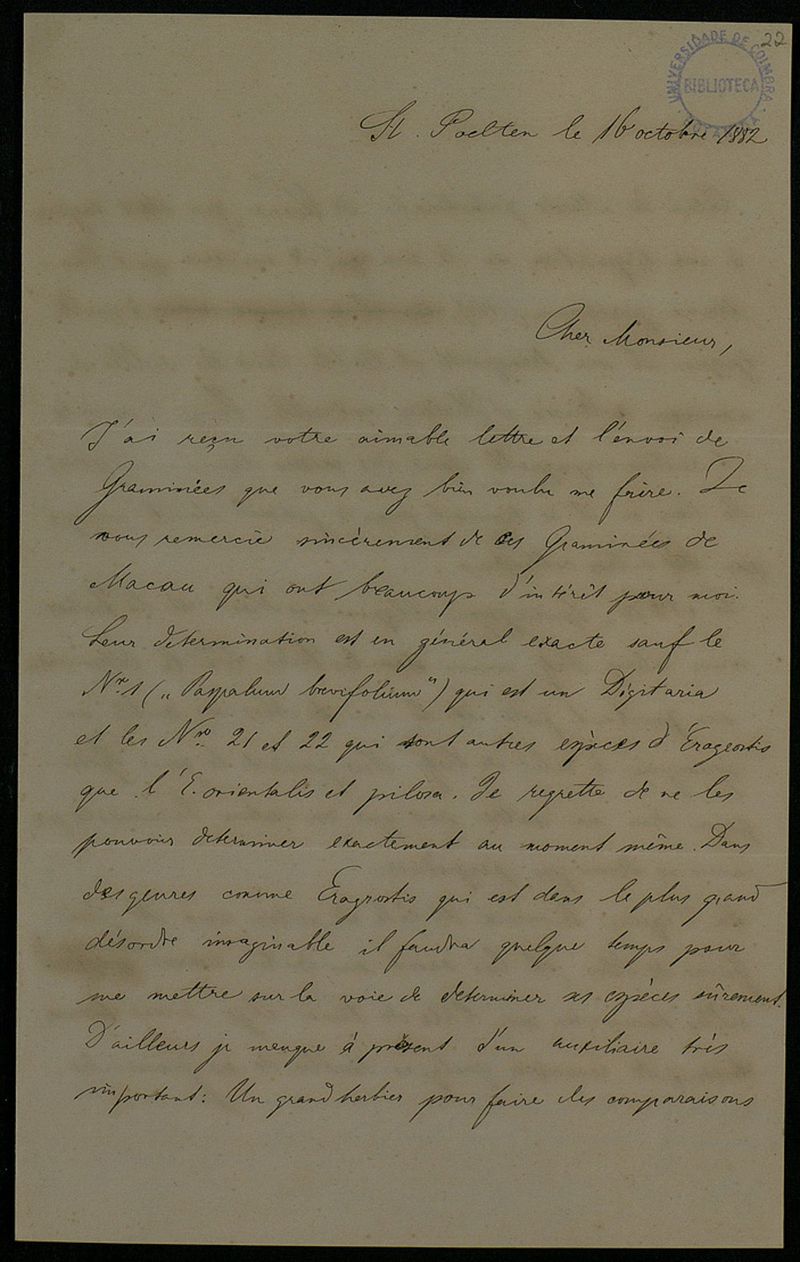 22
UNIVERSIDADE DE COIMBRA
BIBLIOTECA
St. Poelten le 16 octobre 1882
Cher Monsieur,
J'ai reçu votre aimable lettre et l'envoi de
Graminées que vous avez bien voulu me faire. Je
vous remercie sincérement de ces Graminées de
Macau qui ont beaucoup d'intérêt pour moi.
Leur determination est en général exacte sauf le
Nro 1 („Paspalum brevifolium") qui est un Digitaria
et les Nro. 21 et 22 qui sont autres espèces d'Eragrostis
que l'E. orientalis et pilosa. Je regrette de ne les
pouvoir determiner exactement au moment même. Dans
des genres comme Eragrostis qui est dans le plus grand
désordre imaginable il faudra quelque temps pour
me mettre sur la voie de determiner ses espèces sûrement.
D'ailleurs je manque à présent d'un auxiliaire très
important: Un grand herbier pour faire des comparaisons